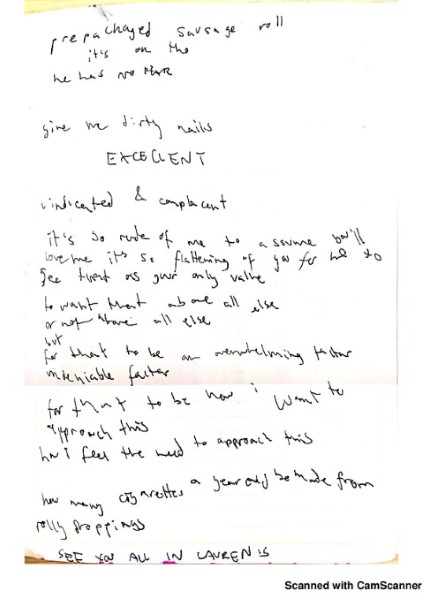 prepackaged sausage roll
it's on the
he has no
give me dirty nails
EXCELLENT
vindicated & complacent
it's so rude of me to assume you'll
love me it's so flattening of you for me to
see as your only value
to want that above all else
or not above all else
but
for that to be an overwhelming factor
undeniable factor
for that to be how i want to
approach this
how i feel the need to approach this
how many cigarettes a year could be made from
rolly droppings
SEE YOU ALL IN
Scanned with CamScanner